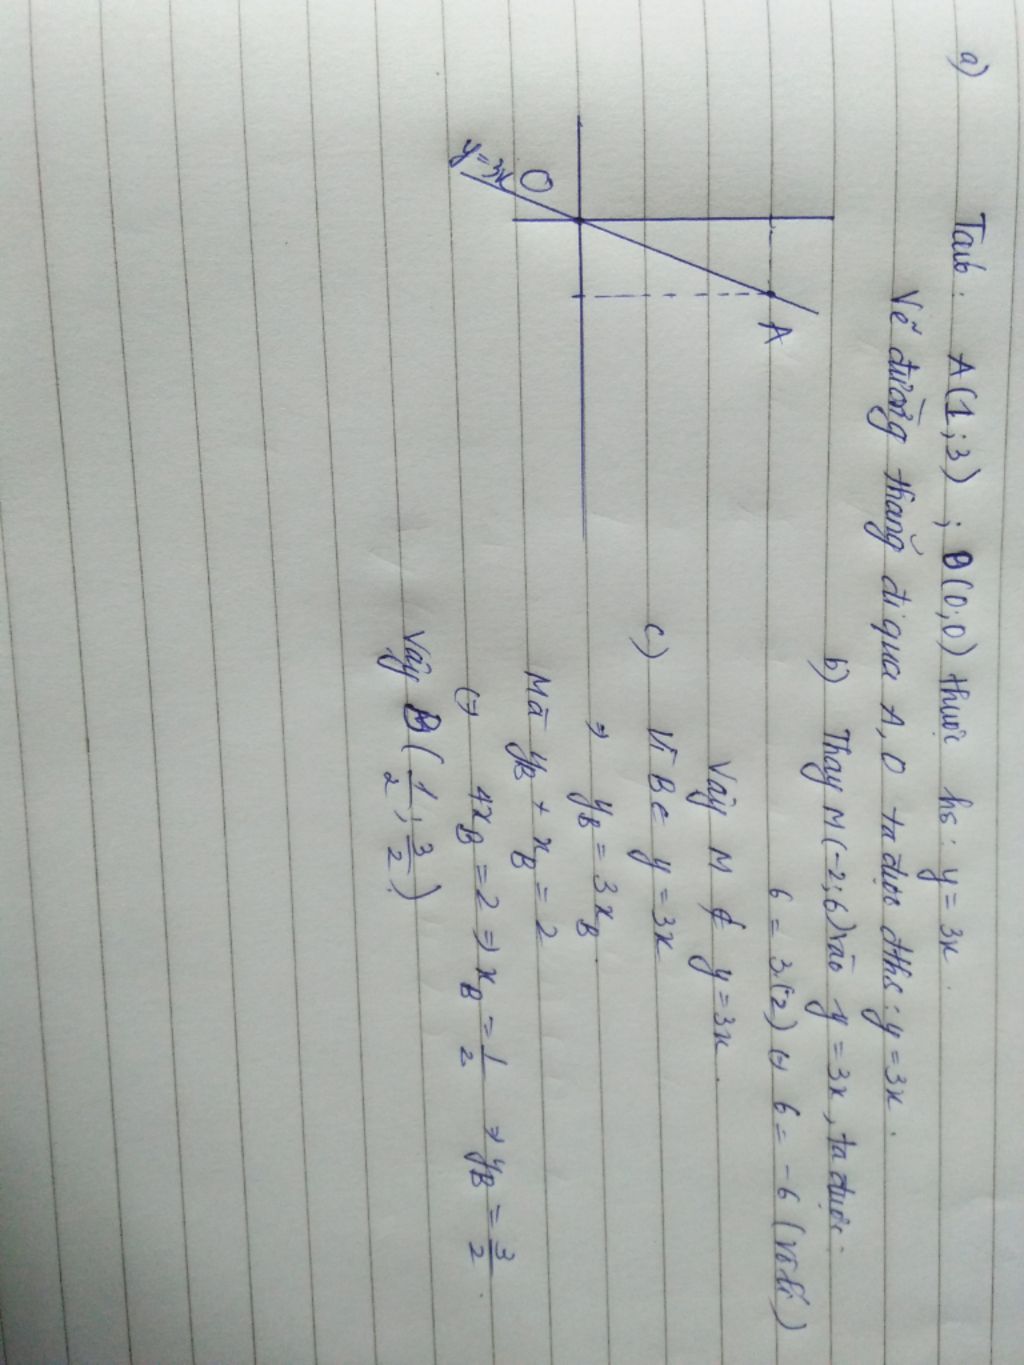 a) Taco: A(1;3); O(0;0) thuộc hs: y = 3x.
Vẽ đường thẳng đi qua A, O ta được đths: y = 3x.
A
O
y=3x
b) Thay M(-2;6) vào y = 3x, ta được:
6 = 3.(-2) ⇔ 6 = -6 (vô lí)
Vậy M ∉ y = 3x.
c) Vì B ∈ y = 3x
⇒ y_B = 3x_B
Mà y_B + x_B = 2
⇔ 4x_B = 2 ⇒ x_B = 1/2 ⇒ y_B = 3/2
Vậy B(1/2; 3/2)